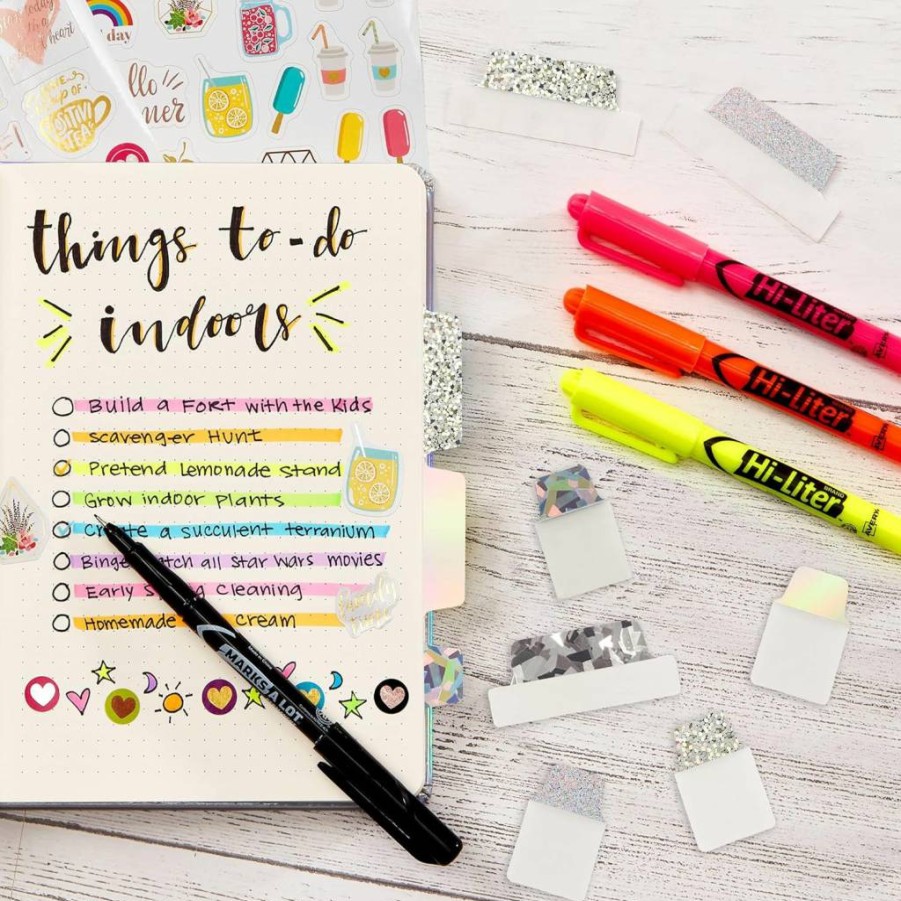 today
is a
heart
day
llo
mer
cup of
POSITIVI
TEA
things to-do
indoors
Build a FORT with the Kids
Scavenger Hunt
Pretend Lemonade Stand
Grow indoor Plants
Create a succulent terranium
Binge watch all Star Wars movies
Early Cleaning
Homemade Cream
MARKS A LOT
Hi-Liter
AVERY
Hi-Liter
AVERY
Hi-Liter
BRAND
AVERY